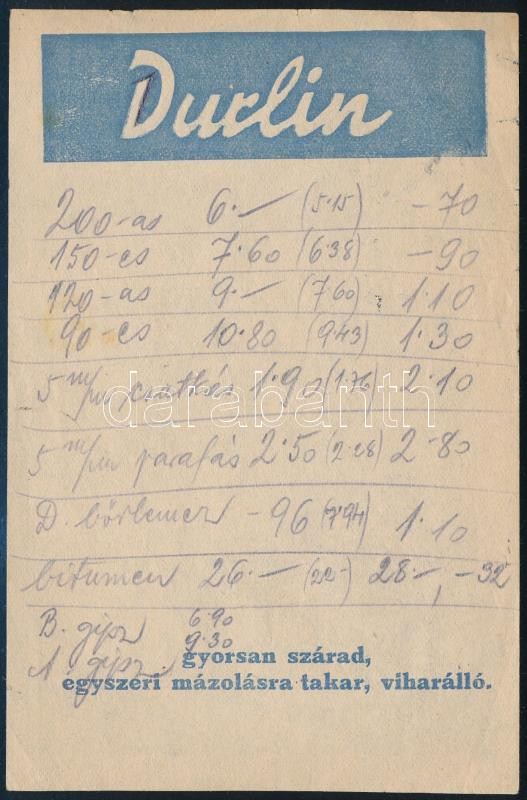 Durlin
200-as 6.— (5.15) -70
150-es 7.60 (6.38) -90
120-as 9.— (7.60) 1.10
90-es 10.80 (9.43) 1.30
5 m/m 1.90 (1.76) 2.10
5 m/m parafás 2.50 (2.28) 2.80
D. bőrlemez -96 1.10
bitumen 26.— (22-) 28.—, -32
B. gipsz 6.90
A. gipsz 9.30
gyorsan szárad,
egyszeri mázolásra takar, viharálló.
darabanth